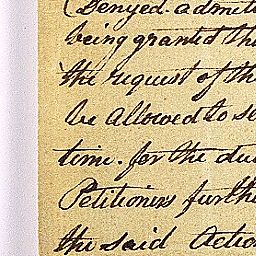 (Denyed. admit
being granted th
the request of th
be allowed to se
time. for the du
Petitioners furthe
the said Actio